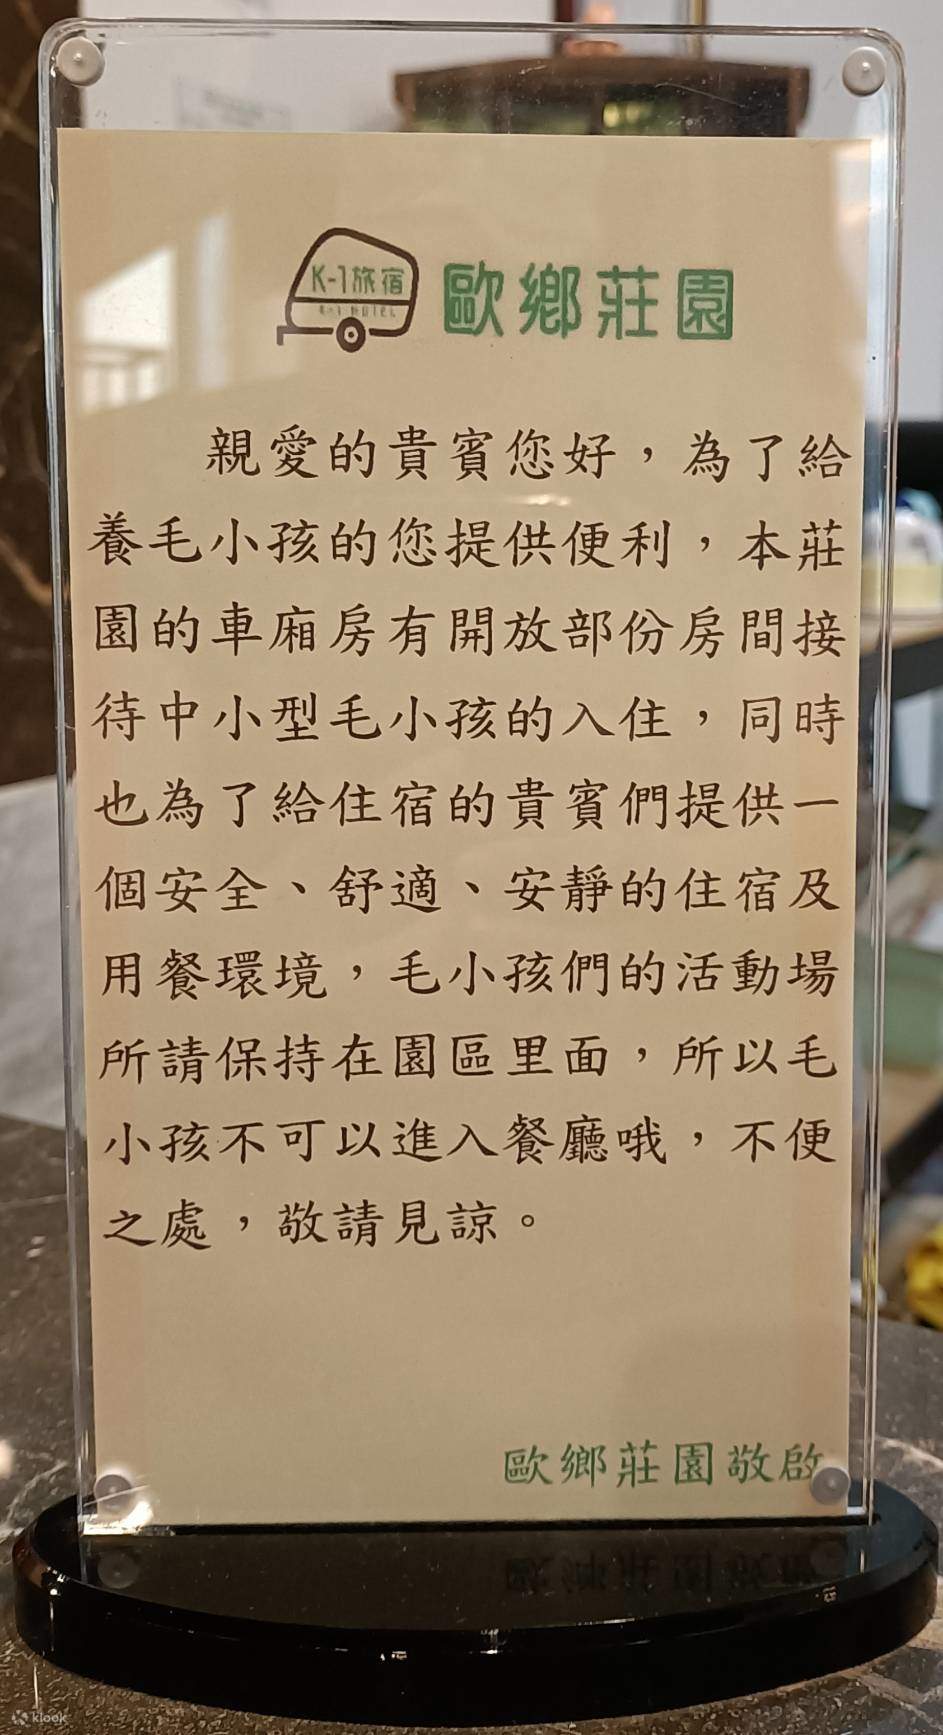 K-1旅宿
K-1 HOTEL
歐鄉莊園
親愛的貴賓您好，為了給
養毛小孩的您提供便利，本莊
園的車廂房有開放部份房間接
待中小型毛小孩的入住，同時
也為了給住宿的貴賓們提供一
個安全、舒適、安靜的住宿及
用餐環境，毛小孩們的活動場
所請保持在園區里面，所以毛
小孩不可以進入餐廳哦，不便
之處，敬請見諒。
歐鄉莊園敬啟
klook